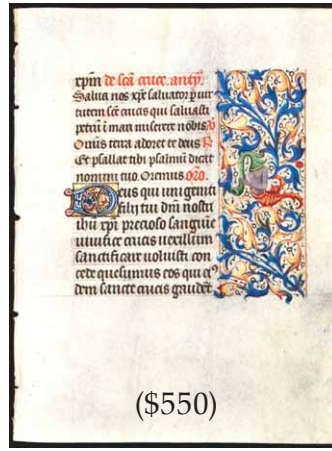 xpm de scā cruce. antɣ.
Salua nos xp̄e saluator p uir
tutem scē crucis qui saluasti
petrū ī mari miserere nobis V
Omīs terra adoret te deus R
Et psallat tibi psalmū dicat
nomini tuo. Oremus. oro.
Deus qui unigeniti
filij tui dn̄i nostri
ihū xp̄i precioso sanguīe
uiuifice crucis uexillum
sanctificare uoluisti con
cede quesumus eos qui ei⁹
dem sancte crucis gaudēt
($550)